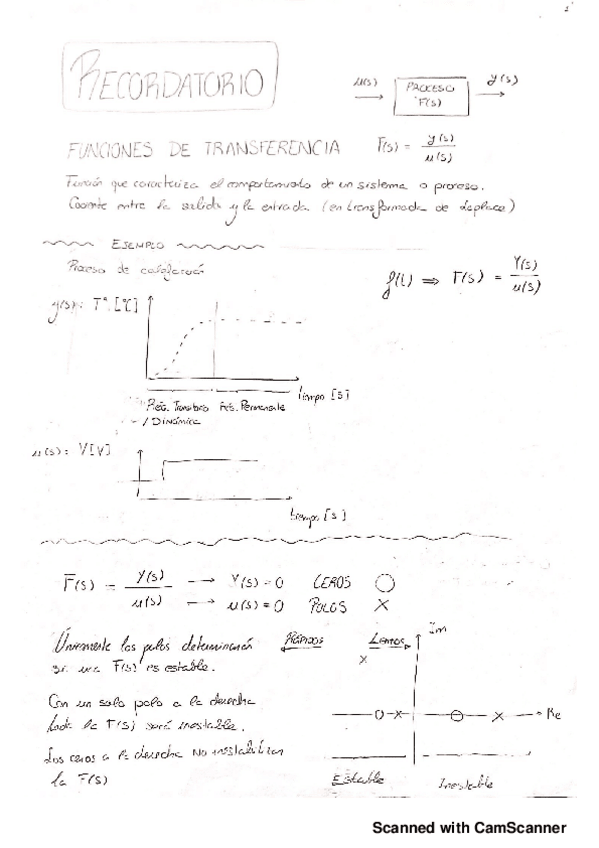 RECORDATORIO
u(s)
PROCESO
F(s)
y(s)
FUNCIONES DE TRANSFERENCIA F(s) = y(s) / u(s)
Función que caracteriza el comportamiento de un sistema o proceso.
Cociente entre la salida y la entrada (en transformada de Laplace)
EJEMPLO
Proceso de calefacción
f(t) ⇒ F(s) = Y(s) / u(s)
y(s): Tª [ºC]
tiempo [s]
Rég. Transitorio Rég. Permanente
/ Dinámica
u(s): V[V]
tiempo [s]
F(s) = Y(s) / u(s) → Y(s) = 0 CEROS ○
→ u(s) = 0 POLOS ×
Únicamente los polos determinarán
si una F(s) es estable.
RÁPIDOS
LENTOS
Im
Con un solo polo a la derecha
toda la F(s) será inestable.
Re
Los ceros a la derecha NO inestabilizan
la F(s)
Estable
Inestable
Scanned with CamScanner